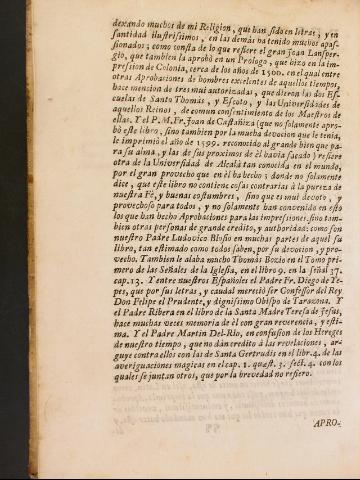 dexando muchos de mi Religion, que han sido en letras, y en
santidad ilustrissimos, en las demàs ha tenido muchos apas-
sionados; como consta de lo que refiere el gran Joan Lansper-
gio, que tambien la aprobò en un Prologo, que hizo en la im-
pression de Colonia, cerca de los años de 1500. en el qual entre
otras Aprobaciones de hombres excelentes de aquellos tiempos,
hace mencion de tres mui autorizadas, que dieron las dos Es-
cuelas de Santo Thomàs, y Escoto, y las Universidades de
aquellos Reinos, de comun consentimiento de los Maestros de
ellas. Y el P. M. Fr. Joan de Castañiza (que no solamente apro-
bò este libro, sino tambien por la mucha devocion que le tenia,
le imprimiò el año de 1599. reconocido al grande bien que pa-
ra su alma, y las de sus proximos de èl havia sacado) refiere
otra de la Universidad de Alcalà tan conocida en el mundo,
por el gran provecho que en èl ha hecho; donde no solamente
dice, que este libro no contiene cosas contrarias à la pureza de
nuestra Fè, y buenas costumbres, sino que es mui devoto, y
provechoso para todos, y no solamente han convenido en esto
los que han hecho Aprobaciones para las impressiones, sino tam-
bien otras personas de grande credito, y autoridad: como son
nuestro Padre Ludovico Blosio en muchas partes de aquel su
libro, tan estimado como todos saben, por su devocion, y pro-
vecho. Tambien le alaba mucho Thomàs Bozio en el Tomo pri-
mero de las Señales de la Iglesia, en el libro 9. en la señal 37.
cap. 13. Y entre nuestros Españoles el Padre Fr. Diego de Ye-
pes, que por sus letras, y caudal mereciò ser Confessor del Rey
Don Felipe el Prudente, y dignissimo Obispo de Tarazona. Y
el Padre Ribera en el libro de la Santa Madre Teresa de Jesus,
hace muchas veces memoria de èl con gran reverencia, y esti-
ma. Y el Padre Martin Del-Rio, en confusion de los Hereges
de nuestro tiempo, que no dàn credito à las revelaciones, ar-
guye contra ellos con las de Santa Gertrudis en el libr. 4. de las
averiguaciones magicas en el cap. 1. quæst. 3. sect. 4. con los
quales se juntan otros, que por la brevedad no refiero.
APRO-